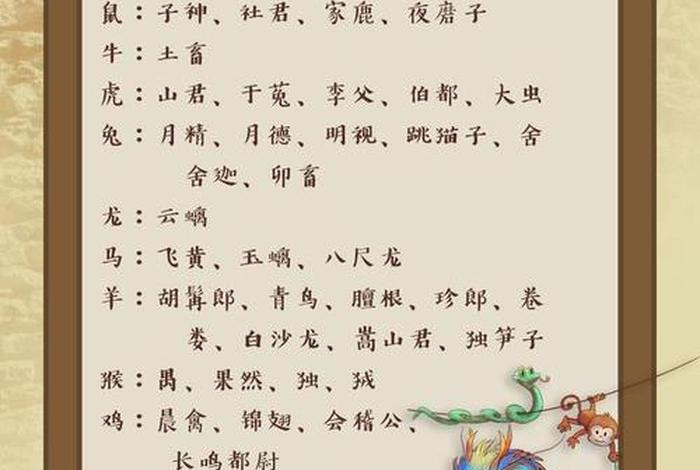 鼠：子神、社君、家鹿、夜磨子
牛：土畜
虎：山君、于菟、李父、伯都、大虫
兔：月精、月德、明视、跳猫子、舍
舍迦、卯畜
龙：云螭
马：飞黄、玉螭、八尺龙
羊：胡髯郎、青鸟、膻根、珍郎、卷
娄、白沙龙、嵩山君、独笋子
猴：禺、果然、独、狨
鸡：晨禽、锦翅、会稽公、
长鸣都尉